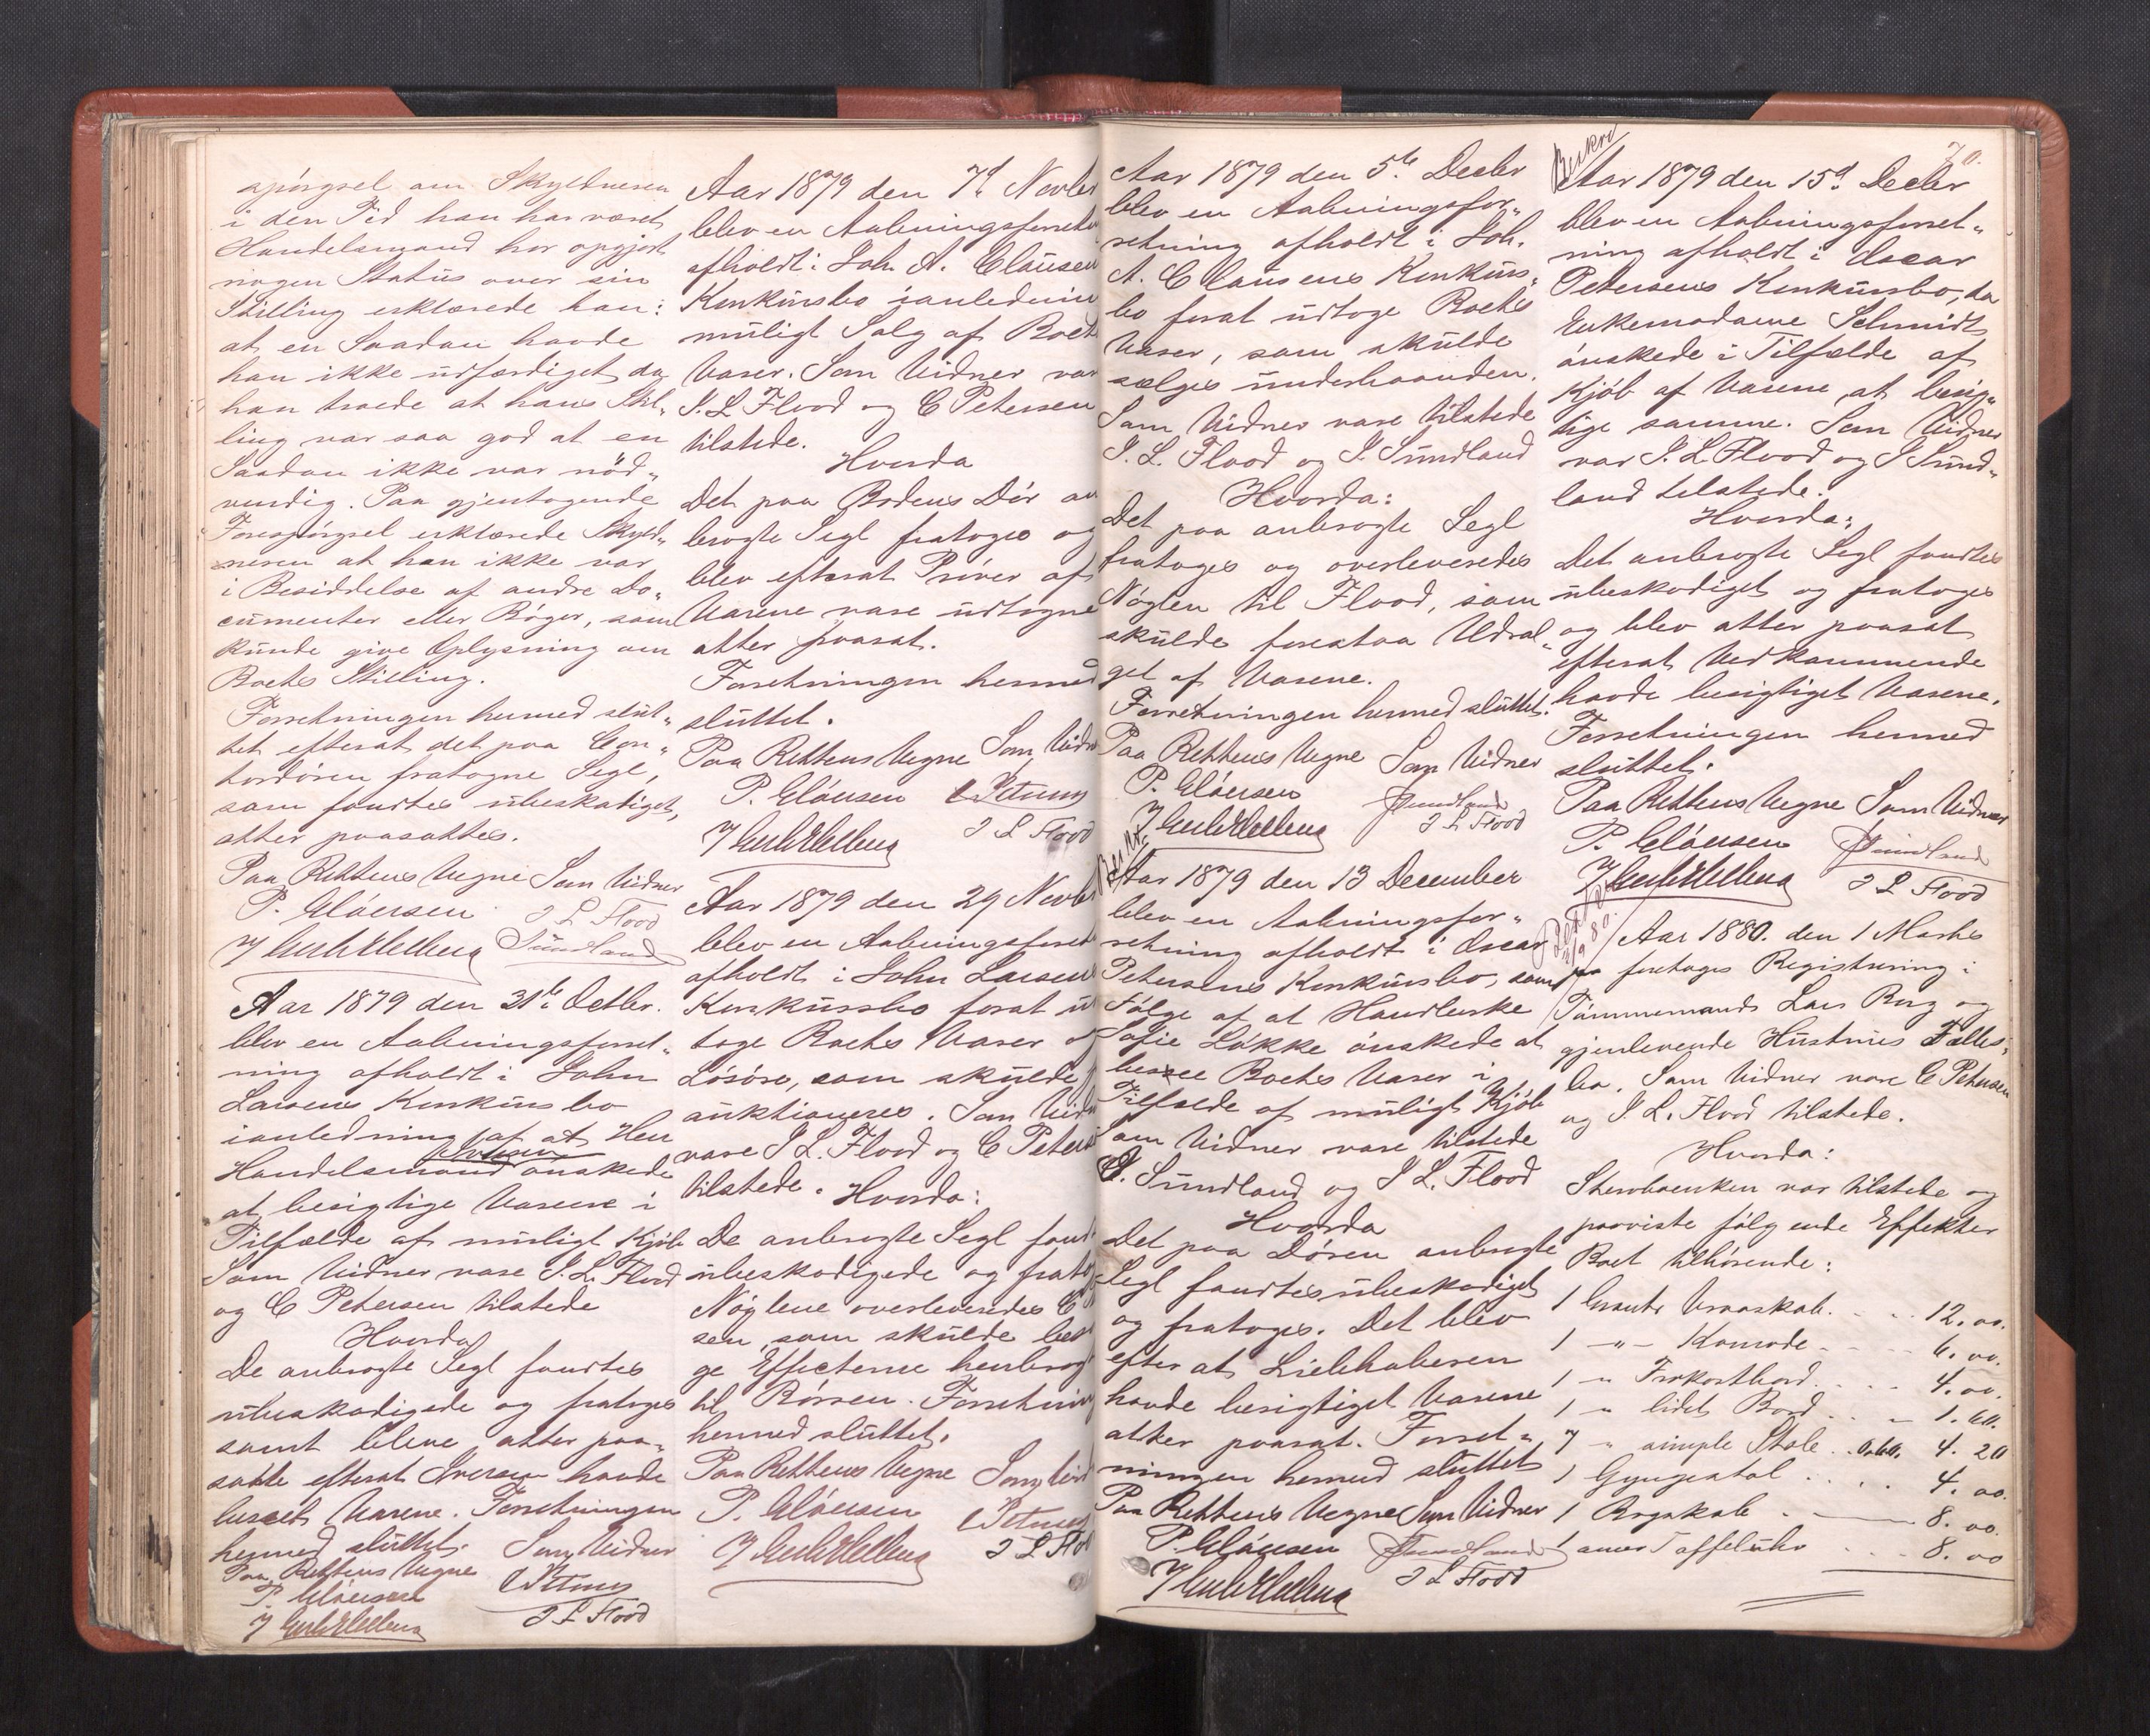 spörgsel om Skyldneren
i den Tid han har været
Handelsmand har opgjort
nogen Status over sin
Stilling erklærede han:
at en Saadan havde
han ikke udfærdiget da
han troede at hans Stil„
ling var saa god at en
Saadan ikke var nöd„
vendig. Paa gjentagende
Forespörgsel erklærede Skyld„
neren at han ikke var
i Besiddelse af andre Do„
cumenter eller Böger, som
kunde give Oplysning om
Boets Stilling.
Forretningen hermed slut„
tet efterat det paa Con„
tordören fratagne Segl,
som fandtes ubeskadiget,
atter paasattes.
Paa Rettens Vegne Som Vidner
P. Clausen J L Flood
Sundland
Aar 1879 den 31te Octbr.
blev en Aabningsforret„
ning afholdt i John
Larsens Konkursbo
ianledning af at Herr
Handelsmand Iversen önskede
at besigtige Varerne i
Tilfælde af muligt Kjöb
Som Vidner vare J. L. Flood
og C Petersen tilstede
Hvorda
De anbragte Segl fandtes
ubeskadigede og fratoges
samt bleve atter paa„
satte efterat Iversen havde
beseet Varene. Forretningen
hermed sluttet.
Paa Rettens Vegne Som Vidner
P. Clausen C Petersen
J L Flood
Aar 1879 den 7d Novbr
blev en Aabningsforretn
afholdt i Joh A. Clausens
Konkursbo ianlednin
muligt Salg af Boets
Varer. Som Vidner var
J. L Flood og C Petersen
tilstede.
Hvorda
Det paa Bodens Dör an
bragte Segl fratoges og
blev efterat Pröver af
Varene vare udtagne
atter paasat.
Forretningen hermed
sluttet.
Paa Rettens Vegne Som Vidn
P. Clausen C Petersen
J L Flood
Aar 1879 den 29 Novbr
blev en Aabningsforretn
afholdt i John Larsens
Konkursbo forat ud
tage Boets Varer og
Lösöre, som skulde
auktioneres. Som Vidn
vare J L. Flood og C Peters
tilstede. Hvorda:
De anbragte Segl fandt
ubeskadigede og fratog
Nöglene overleveredes C
sen, som skulde besör
ge Effecterne henbragt
til Börsen. Forretning
hermed sluttet.
Paa Rettens Vegne Som Vid
P. Clausen C Petersen
J L Flo
Aar 1879 den 5te Decbr
blev en Aabningsfor„
retning afholdt i Joh.
A. Clausens Konkurs„
bo forat udtage Boets
Varer, som skulde
sælges underhaanden.
Som Vidner vare tilstede
J. L. Flood og J. Sundland
Hvorda:
Det paa anbragte Segl
fratoges og overleveredes
Nöglen til Flood, som
skulde forestaa Udsal„
get af Varene.
Forretningen hermed sluttet.
Paa Rettens Vegne Som Vidner
P. Clausen Sundland
J L Flood
Aar 1879 den 13 December
blev en Aabningsfor„
retning afholdt i Oscar
Petersens Konkursbo, som
Fölge af at Handlerske
Sofie Lökke önskede at
besee Boets Varer i
Tilfælde af muligt Kjöb
Som Vidner vare tilstede
J. Sundland og J L. Flood
Hvorda
Det paa Dören anbragte
Segl fandtes ubeskadiget
og fratoges. Det blev
efter at Liebhaberen
havde besigtiget Varene
atter paasat. Forret„
ningen hermed sluttet
Paa Rettens Vegne Som Vidner
P Clausen Sundland
J L Flood
70.
Aar 1879 den 15d Decbr
blev en Aabningsforret„
ning afholdt i Oscar
Petersens Konkursbo, da
Enkemadame Schmidt
önskede i Tilfælde af
Kjöb af Varene, at besig„
tige samme. Som Vidner
var J. L. Flood og J Sund„
land tilstede.
Hvorda:
Det anbragte Segl fandtes
ubeskadiget og fratoges
og blev atter paasat
efterat Vedkommende
havde besigtiget Varene.
Forretningen hermed
sluttet.
Paa Rettens Vegne Som Vidner
P. Clausen Sundland
J L Flood
Aar 1880. den 1 Marts
foretoges Registrering i
Tömmermand Lars Berg og
gjenlevende Hustrues Fælles„
bo. Som Vidner vare C Petersen
og J. L. Flood tilstede.
Hvorda:
Stervboenken var tilstede og
paaviste fölgende Effekter
Boet tilhörende:
1 Vraaskab. 12.00.
1 -"- Komode 6.00.
1 " Frokostbord 4.00.
1 " lidet Bord 1.60.
7 " simple Stole 0.60. 4.20
1 Gyngestol 4.00.
1 8.00.
1 amer Taffeluhr 8.00